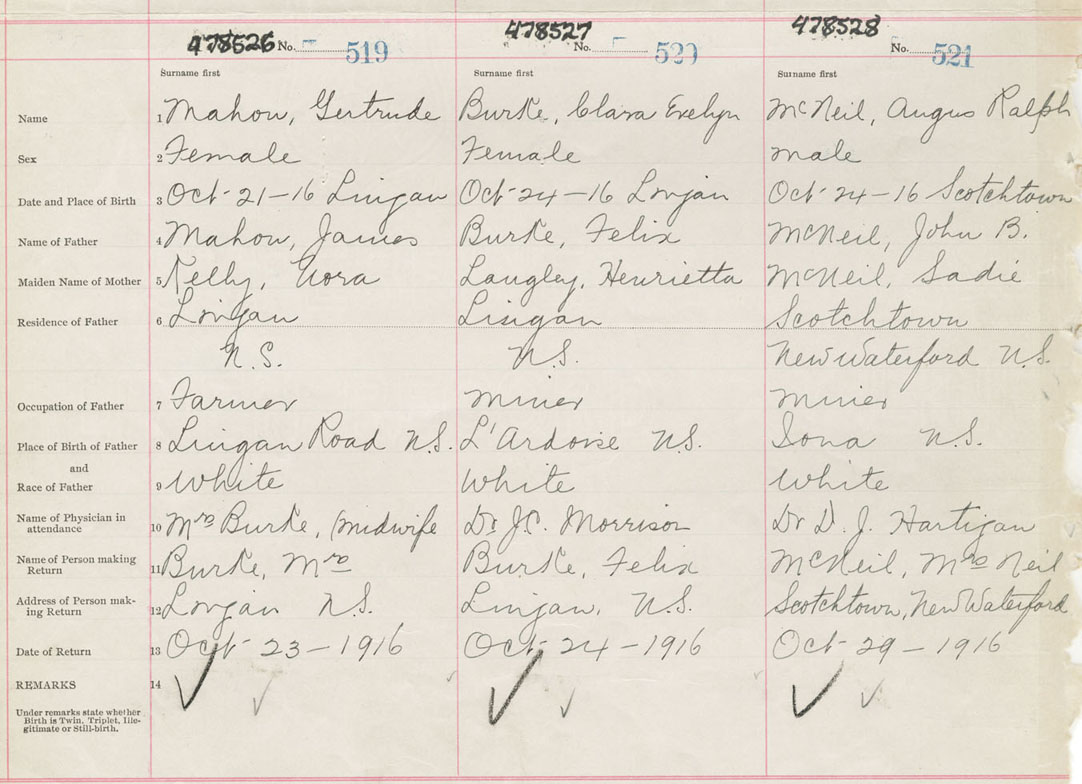 478526 No. 519 478527 No. 520 478528 No. 521
Surname first Surname first Surname first
Name 1 Mahon, Gertrude Burke, Clara Evelyn McNeil, Angus Ralph
Sex 2 Female Female male
Date and Place of Birth 3 Oct-21-16 Lingan Oct-24-16 Lingan Oct-24-16 Scotchtown
Name of Father 4 Mahon, James Burke, Felix McNeil, John B.
Maiden Name of Mother 5 Kelly, Nora Langley, Henrietta McNeil, Sadie
Residence of Father 6 Lingan Lingan Scotchtown
N.S. N.S. New Waterford N.S.
Occupation of Father 7 Farmer miner miner
Place of Birth of Father 8 Lingan Road N.S. L'Ardoise N.S. Iona N.S.
and
Race of Father 9 White White White
Name of Physician in 10 Mrs Burke, (midwife Dr J.C. Morrison Dr D. J. Hartigan
attendance
Name of Person making 11 Burke, Mrs Burke, Felix McNeil, Mrs Neil
Return
Address of Person mak- 12 Lingan N.S. Lingan, N.S. Scotchtown, New Waterford
ing Return
Date of Return 13 Oct-23-1916 Oct-24-1916 Oct-29-1916
REMARKS 14
Under remarks state whether
Birth is Twin, Triplet, Ille-
gitimate or Still-birth.